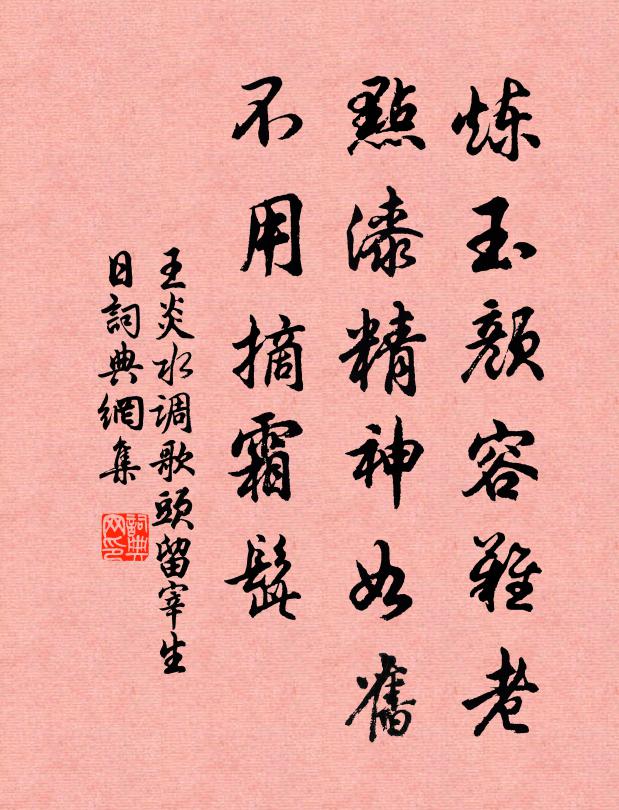 炼玉颜容难老
點漆精神如舊
不用摘霜髭
王炎水调歌頭留宰生
日詞典網集
詞典
网印